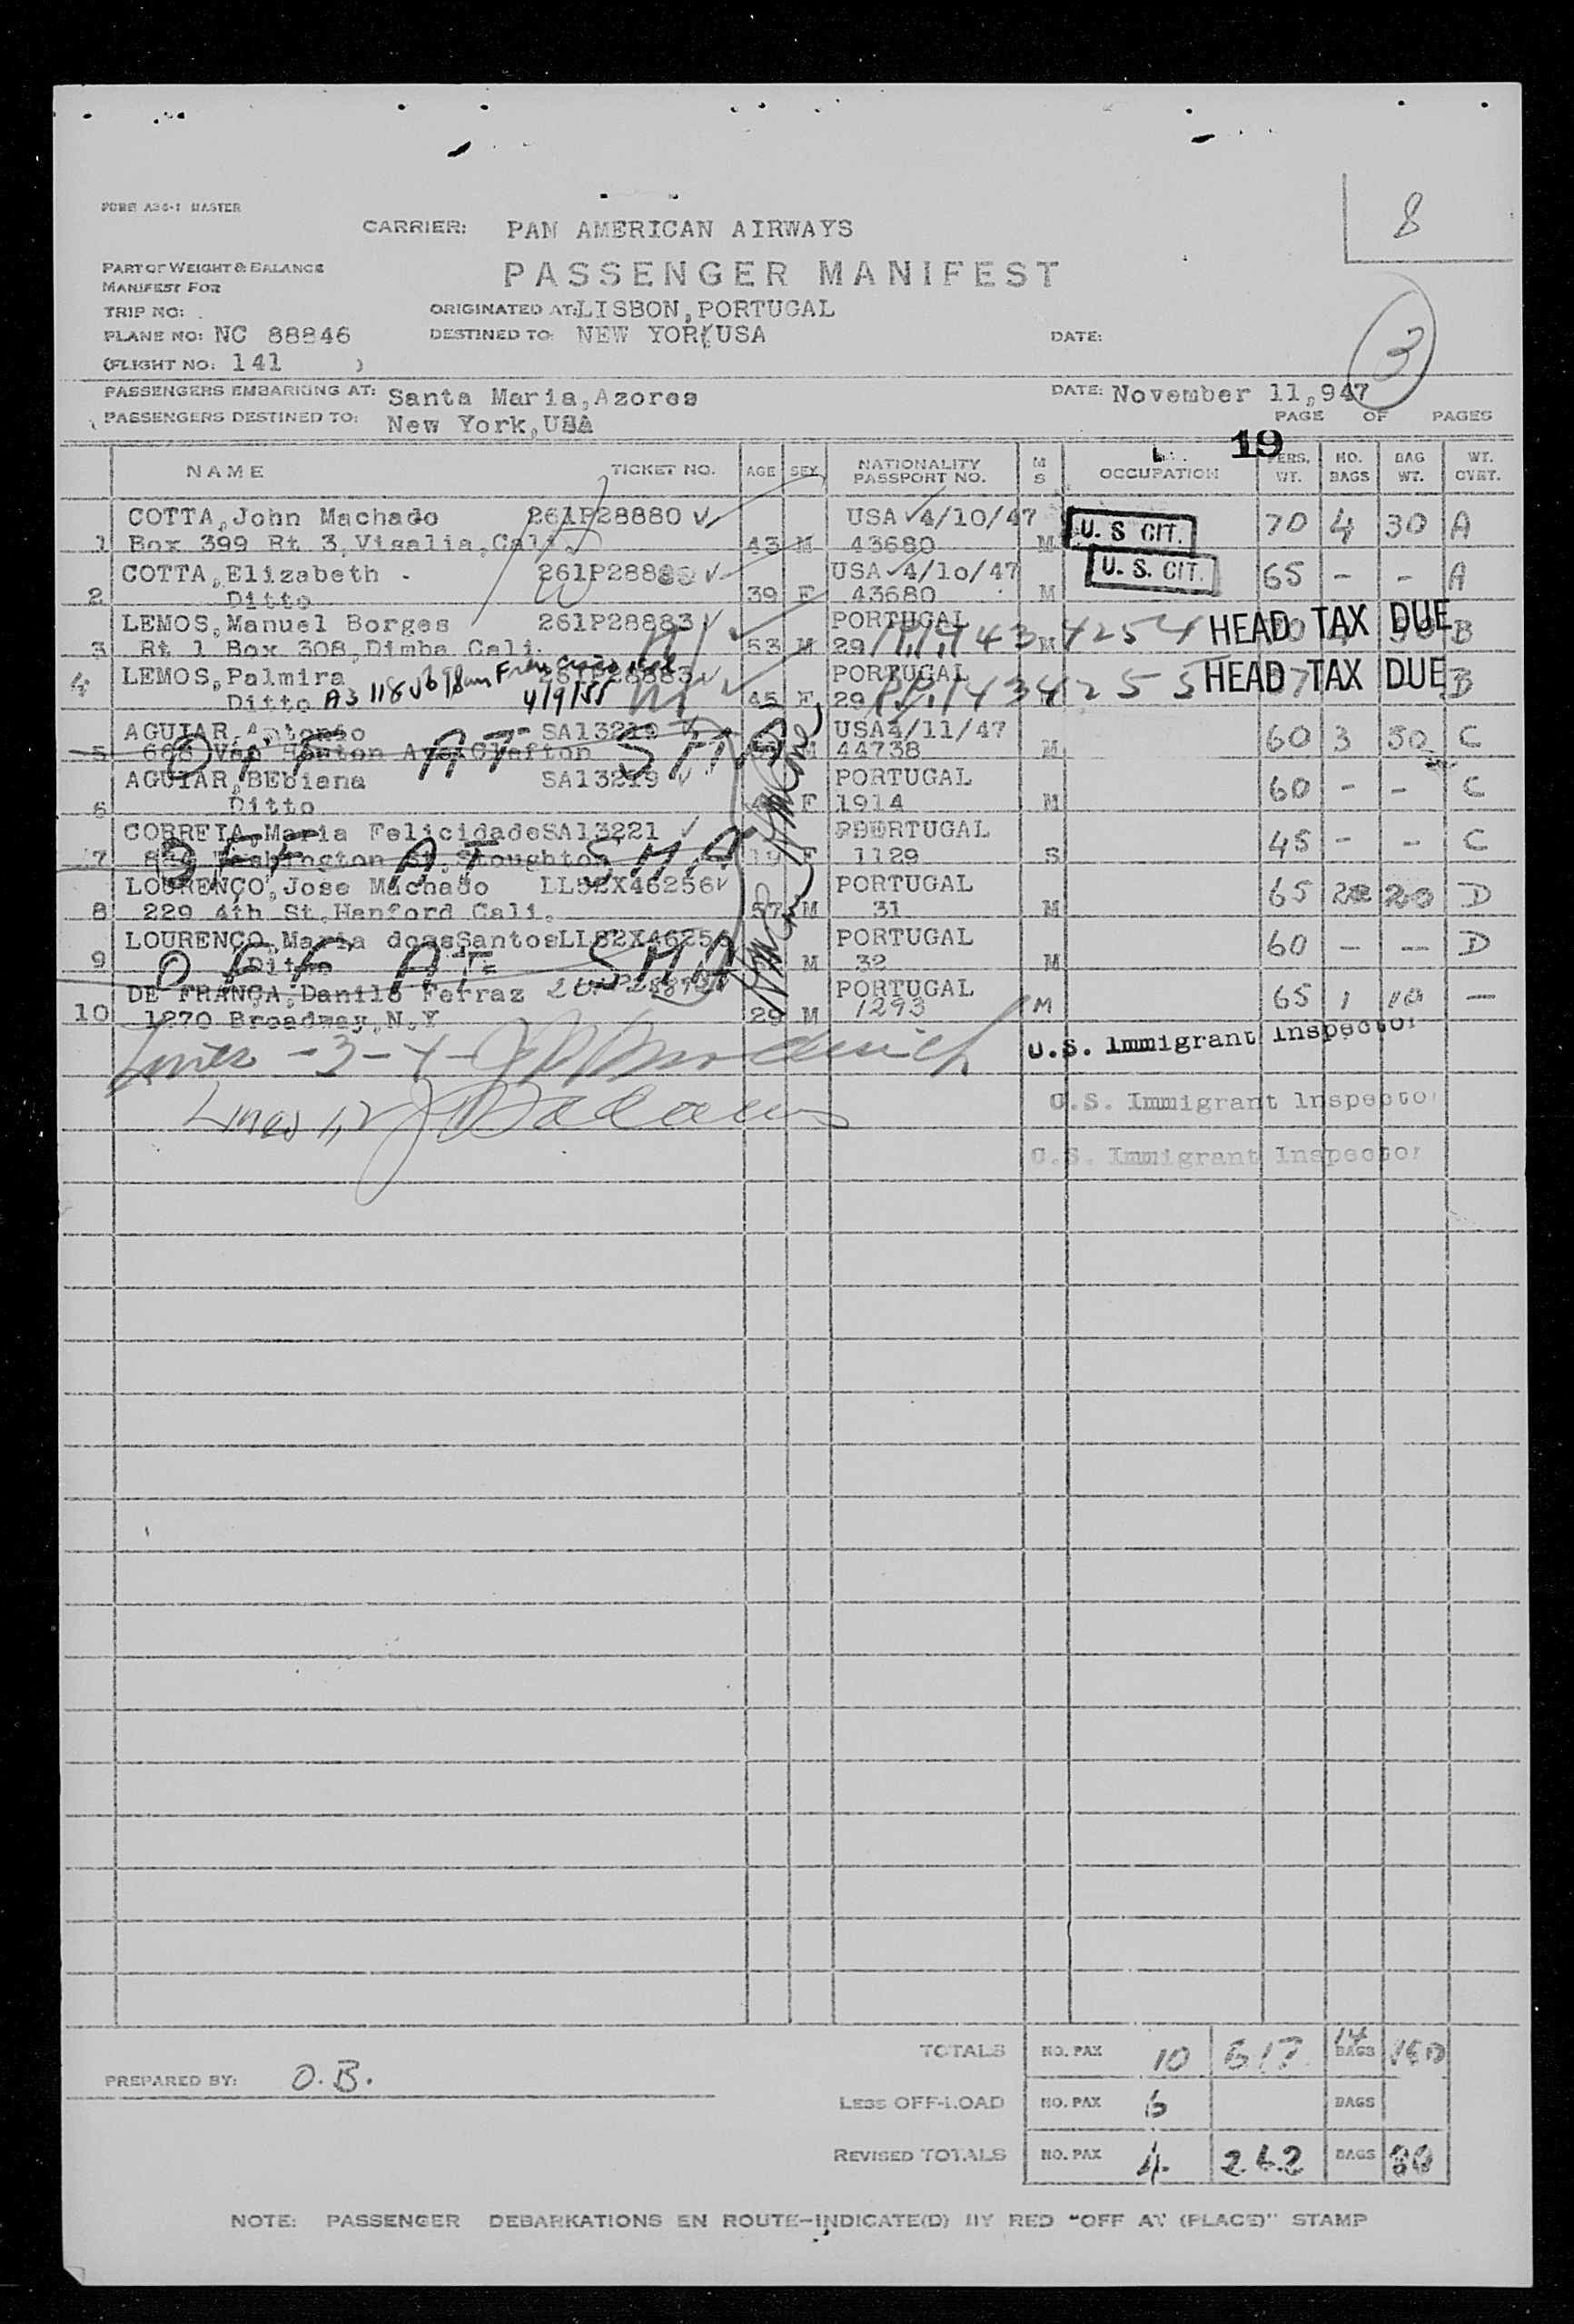 FORM A36-1 MASTER
8
CARRIER: PAN AMERICAN AIRWAYS
PART OF WEIGHT & BALANCE
MANIFEST FOR
PASSENGER MANIFEST
TRIP NO:
ORIGINATED AT: LISBON, PORTUGAL
PLANE NO: NC 88846
DESTINED TO: NEW YORK USA
DATE:
3
(FLIGHT NO: 141 )
PASSENGERS EMBARKING AT: Santa Maria, Azores
DATE: November 11, 947
PASSENGERS DESTINED TO: New York, USA
PAGE OF PAGES
19
NAME TICKET NO. AGE SEX NATIONALITY PASSPORT NO. M S OCCUPATION PERS. WT. NO. BAGS BAG WT. WT. CVRT.
COTTA, John Machado 261P28880 USA 4/10/47 U. S CIT. 70 4 30 A
1 Box 399 Rt 3, Visalia, Cali. 43 M 43680 M
COTTA, Elizabeth 261P28880 USA 4/10/47 U. S. CIT. 65 - - A
2 Ditto 39 F 43680 M
LEMOS, Manuel Borges 261P28883 PORTUGAL HEAD TAX DUE B
3 Rt 1 Box 308, Dimba Cali. 53 M 29 1434254 M
4 LEMOS, Palmira 261P28883 PORTUGAL HEAD TAX DUE B
Ditto 4/9/55 45 F 29 1434255
AGUIAR, Antonio SA13219 USA 4/11/47 60 3 30 C
5 Van Houton Ave Clifton M 44738 M
OFF AT SMA
AGUIAR, BEbiana SA13219 PORTUGAL 60 - - C
6 Ditto F 1914 M
CORREIA, Maria Felicidade SA13221 PORTUGAL 45 - - C
7 Washington St, Stoughton 19 F 1129 S
OFF AT SMA
LOURENÇO, Jose Machado LL82X46256 PORTUGAL 65 20 D
8 229 4th St, Hanford Cali. 57 M 31 M
LOURENÇO, Maria PORTUGAL 60 - - D
9 Ditto M 32 M
OFF AT SMA
DE FRANÇA, Danilo Ferraz PORTUGAL 65 1 10 -
10 1270 Broadway, N.Y 29 M 1293 M
Lines -3-4-
U.S. Immigrant Inspector
Lines 1,2
U.S. Immigrant Inspector
U.S. Immigrant Inspector
TOTALS NO. PAX 10 617 14 BAGS
PREPARED BY: O.B.
LESS OFF-LOAD NO. PAX 6 BAGS
REVISED TOTALS NO. PAX 4 262 BAGS
NOTE: PASSENGER DEBARKATIONS EN ROUTE-INDICATE(D) BY RED "OFF AT (PLACE)" STAMP